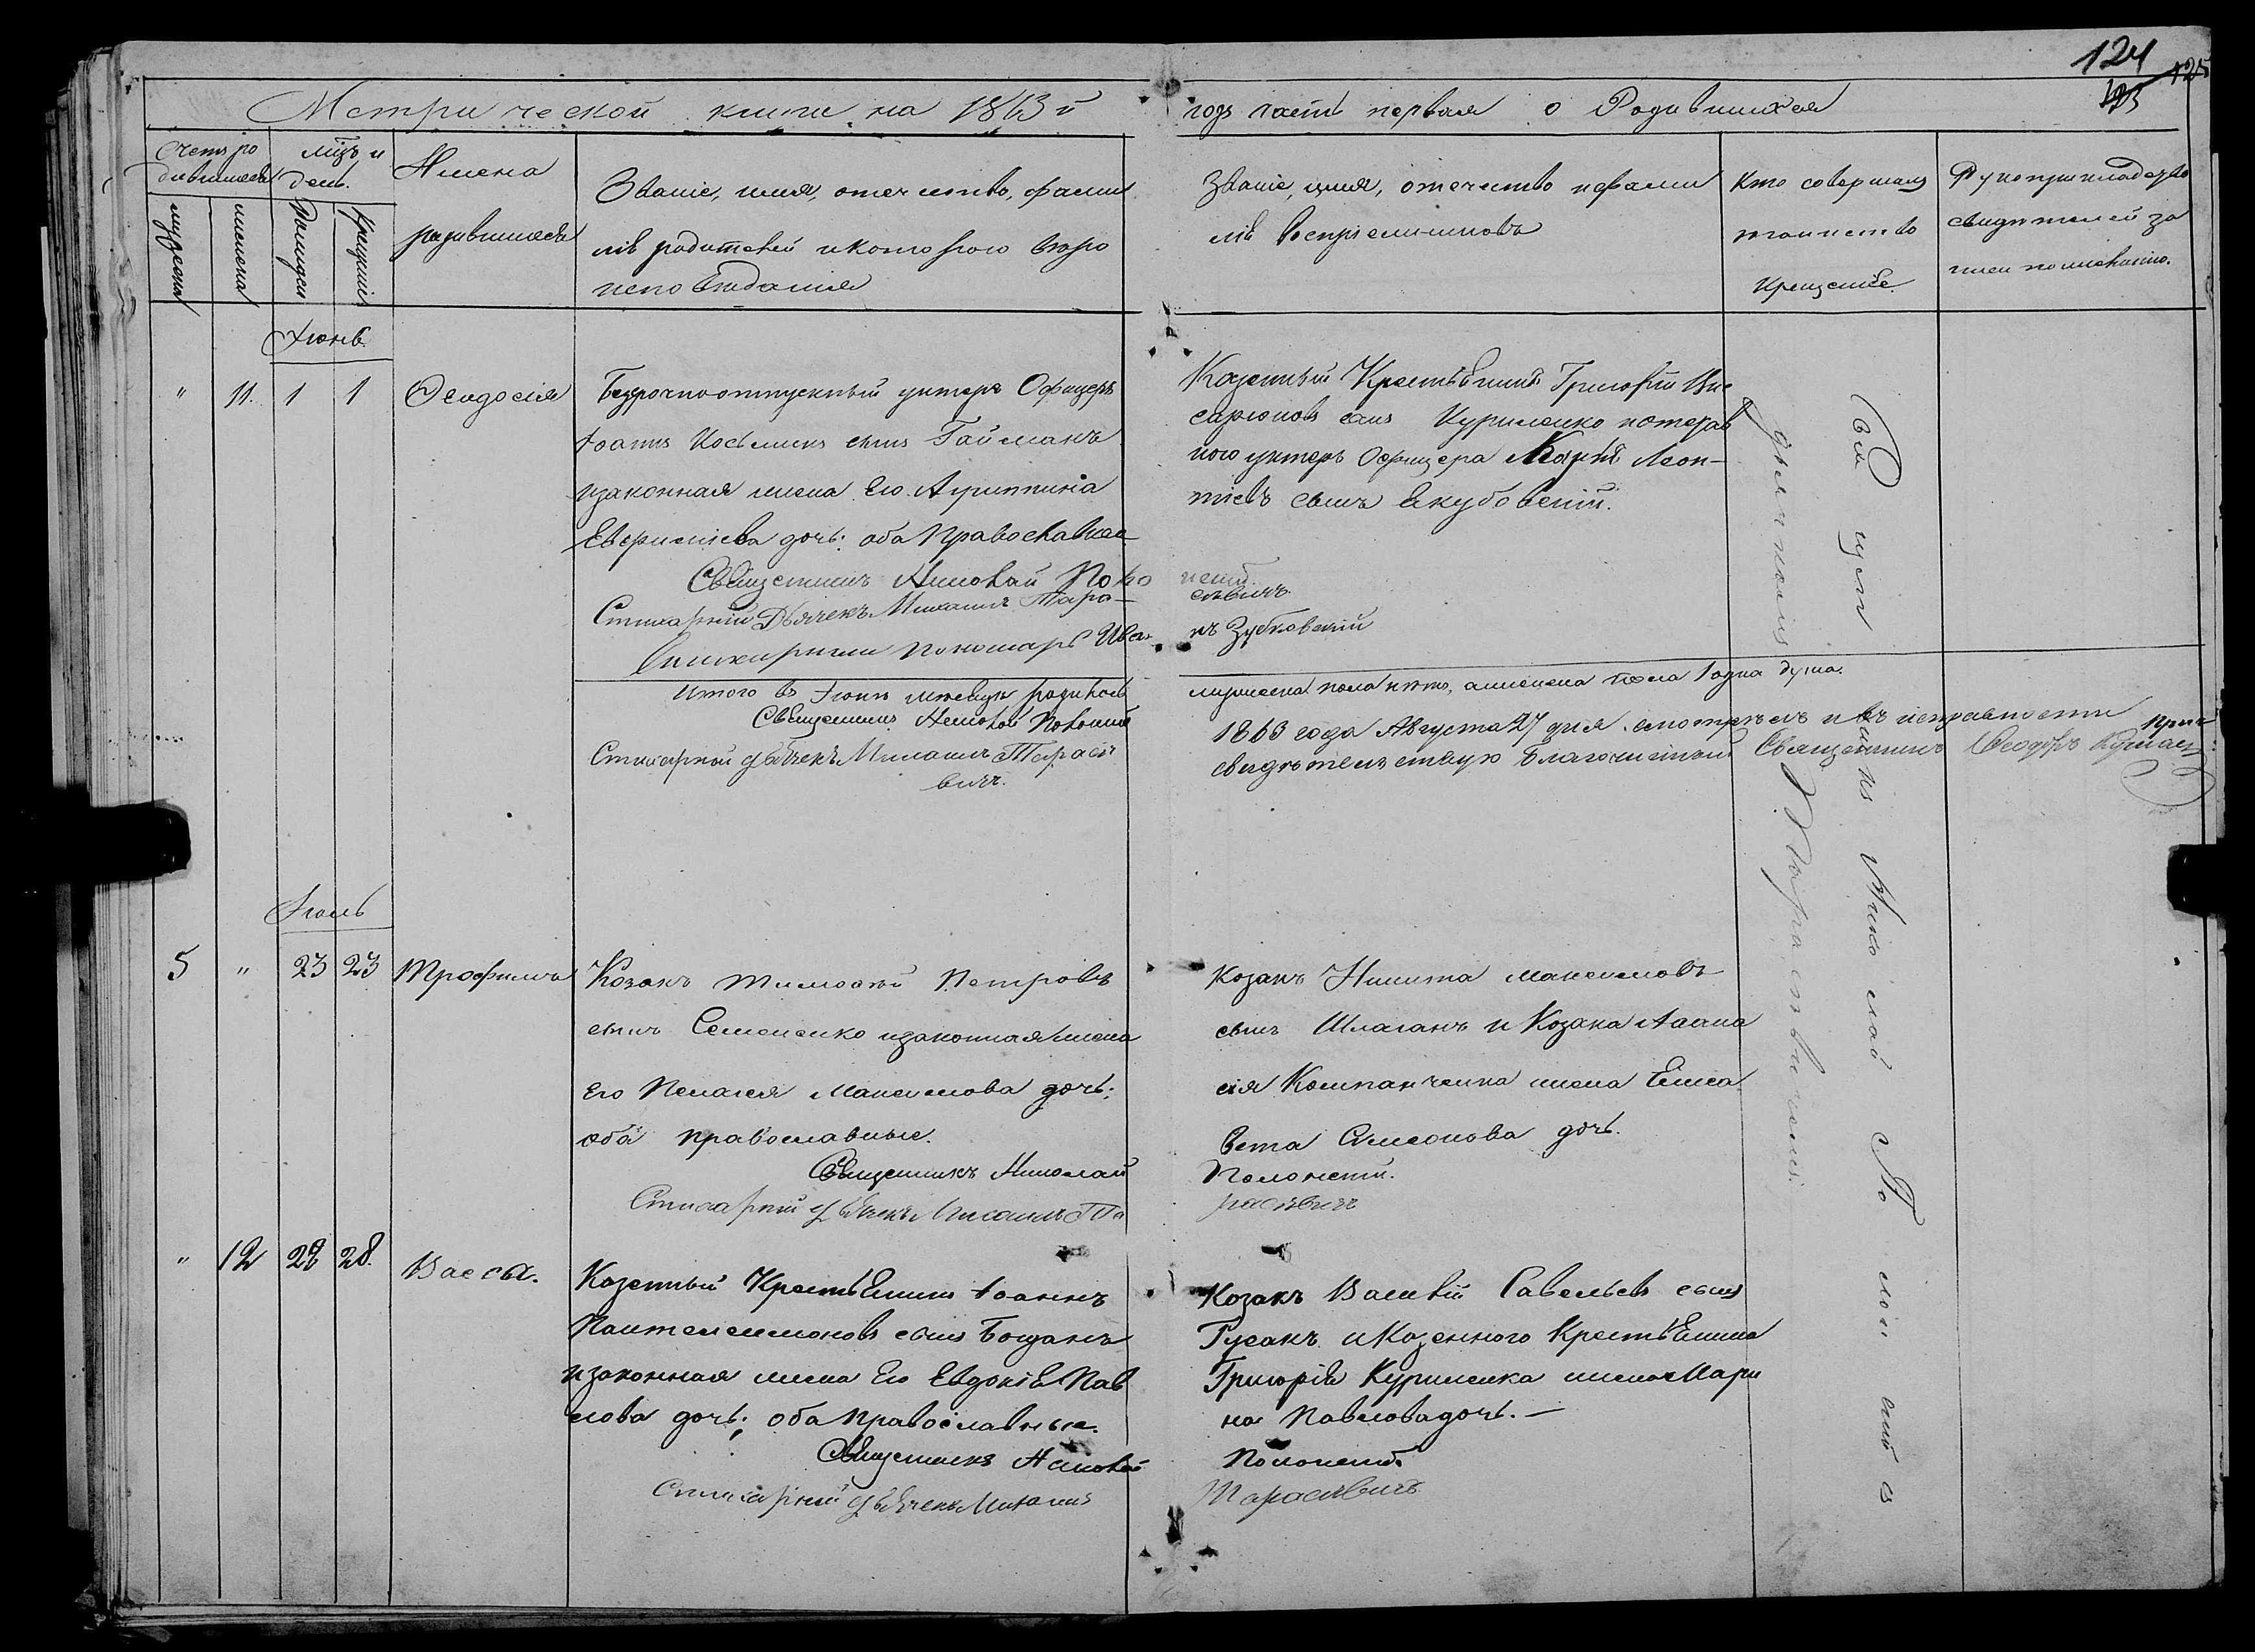 124
125
Метрической книги на 1863й
годъ часть первая о Родившихся
Счетъ ро
дившихся
мужеска
женска
Мцъ и
день.
Рожденія
Крещенія
Имена
родившихся
Званіе, имя, отечество, фами
лія родителей и котораго вѣро
исповѣданія
Званіе, имя, отечество и фами
лія воспріемниковъ
Кто совершалъ
таинство
крещенія
Рукоприкладство
свидѣтелей за
писи по желанію.
Іюнь
" 11. 1 1 Ѳеодосія
Безсрочноотпускный унтеръ Офицеръ
Іоаннъ Косьминъ сынъ Гайманъ
и законная жена Его Агриппина
дочь; оба Православные
Священникъ Николай Поло
Стихарный Дьячекъ Михаилъ Тара-
Стихарный пономарь Ива
Казенный Крестьянинъ Григорій Вис
саріоновъ сынъ Куриленко и отстав
ного унтеръ Офицера Леон-
тіевъ сынъ Якубовскій.
нскій
сѣвичъ
нъ Зубковскій
Итого въ Іюнѣ мѣсяцѣ родилось
Священникъ Николай Полонскій
Стихарной дьячекъ Михаилъ Тарасѣ
вичъ.
мужеска пола нѣтъ, а женска пола 1 одна душа.
1863 года Августа 27 дня смотрѣлъ и въ исправности
свидѣтельствую Благочинный Священникъ Ѳеодоръ
Іюль
5 " 23 23 Трофимъ
Козакъ Тимоѳей Петровъ
сынъ Семененко и законная жена
Его Пелагея Максимова дочь;
оба православные.
Священникъ Николай
Стихарный дьячекъ Михаилъ Та
Козакъ Никита Максимовъ
сынъ Шлаганъ и Козака Аѳана
сія Компанченка жена Елиса
вета Симеонова дочь.
Полонскій.
расѣвичъ
" 12 28 28. Васса.
Казенный Крестьянинъ Іоаннъ
Пантелеимоновъ сынъ Боцанъ
и законная жена Его Евдокія Пав
лова дочь; оба православные.
Священникъ Николай
Стихарный дьячекъ Михаилъ
Козакъ Василій Савельевъ сынъ
Гусакъ и Казенного Крестьянина
Григорія Куриленка жена Мари
на Павлова дочь.—
Полонскій.
Тарасѣвичъ
Священникъ Николай Полонскій съ
дьячкомъ Тарасѣвичемъ